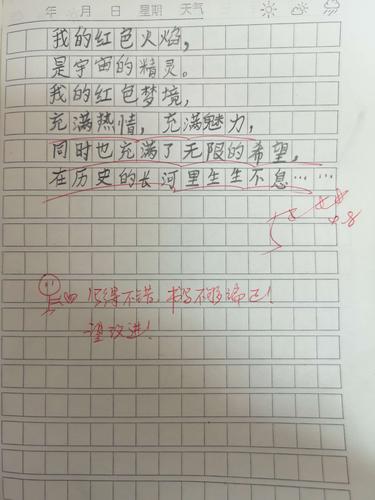 年 月 日 星期 天气
我的红色火焰,
是宇宙的精灵。
我的红色梦境,
充满热情，充满魅力,
同时也充满了无限的希望,
在历史的长河里生生不息……
写得不错，书写不够端正!
望改进!